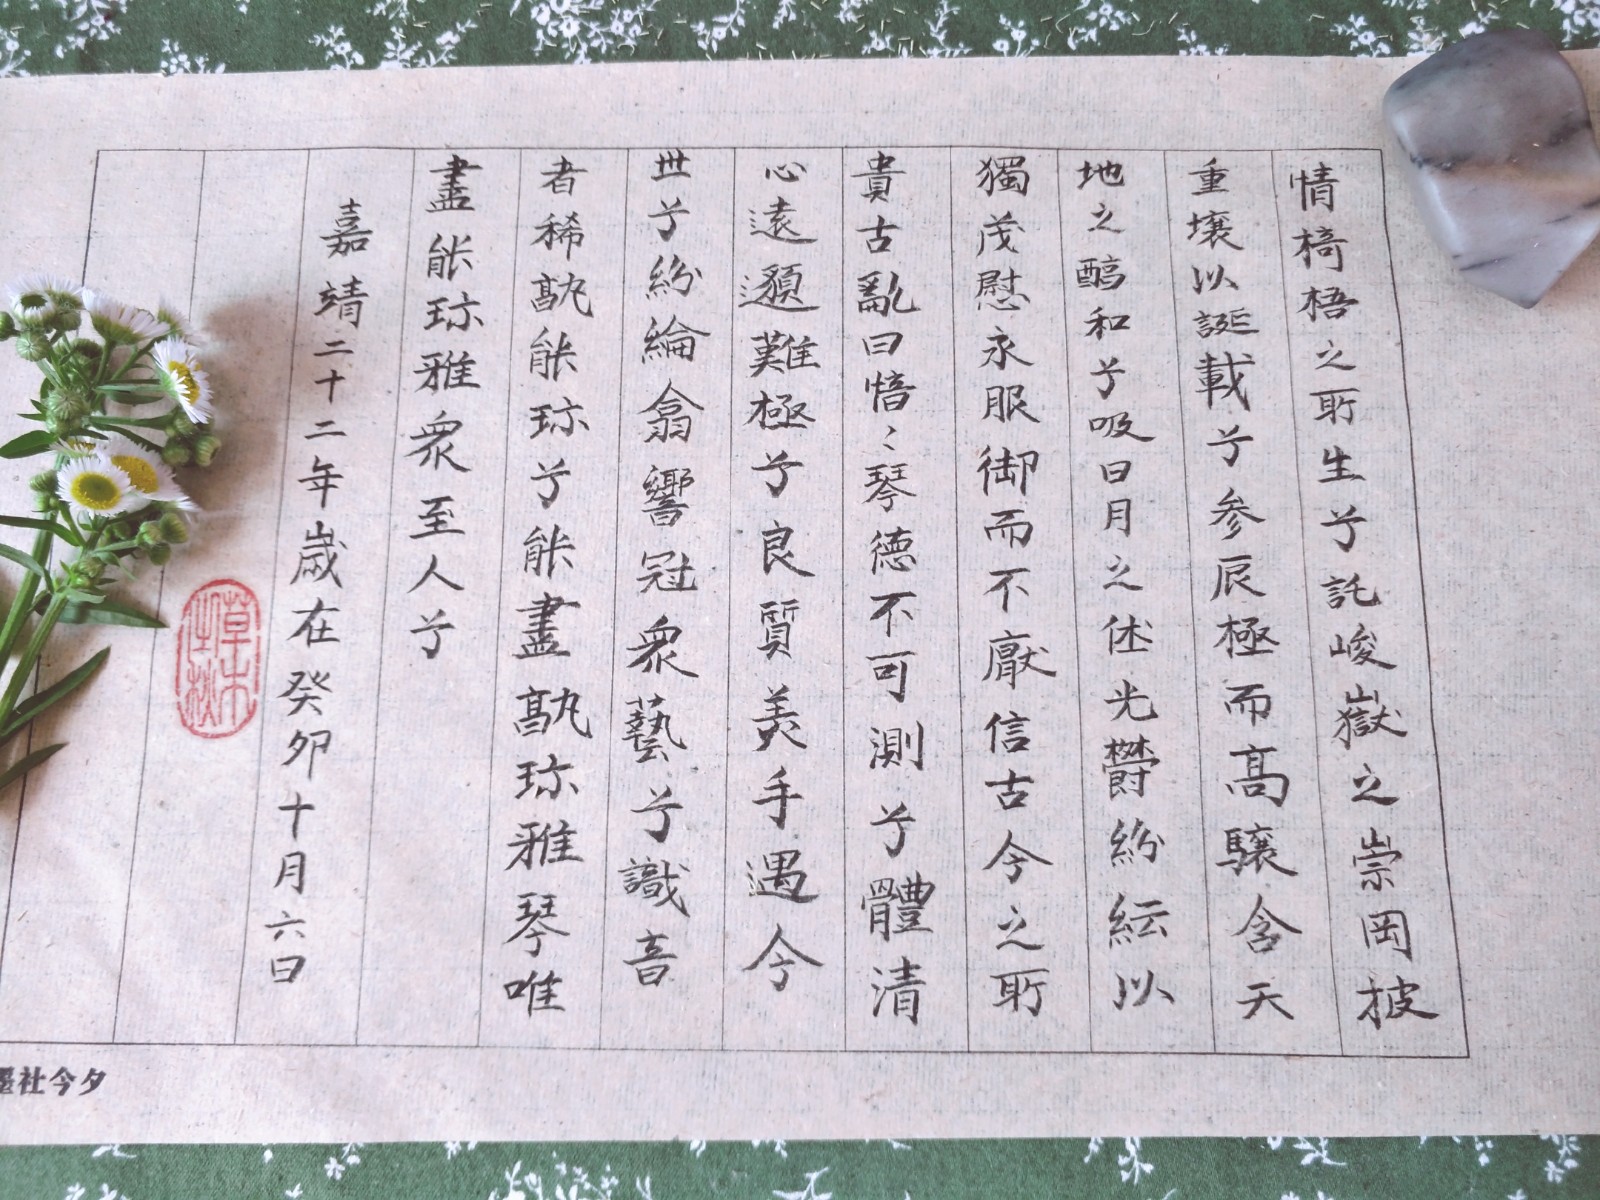 情椅梧之所生兮託峻嶽之崇岡披
重壤以誕載兮参辰極而高驤含天
地之醇和兮吸日月之休光鬱紛紜以
獨茂慰永服御而不厭信古今之所
貴古亂曰愔〻琴德不可測兮體清
心遠邈難極兮良質美手遇今
世兮紛綸翕響冠衆藝兮識音
者稀孰能珎兮能盡孰珎雅琴唯
盡能珎雅衆至人兮
嘉靖二十二年歲在癸卯十月六日
草木
墨社今夕